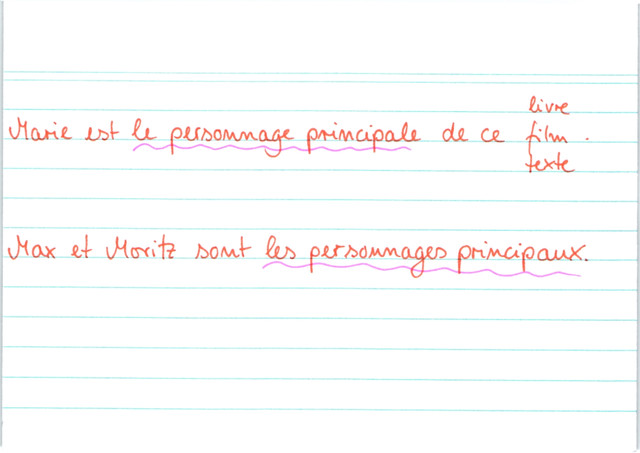 livre
Marie est le personnage principale de ce film.
texte
Max et Moritz sont les personnages principaux.